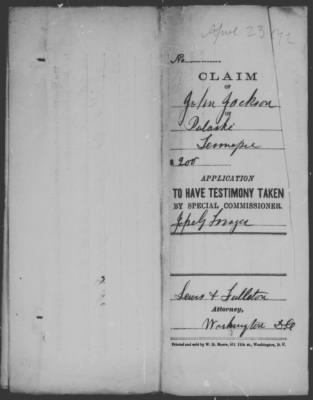 April 23 /72
No.
CLAIM
OF
John Jackson
OF
Pulaski
Tennessee
$ 200
APPLICATION
TO HAVE TESTIMONY TAKEN
BY SPECIAL COMMISSIONER.
Lewis & Fullerton
Attorney,
Washington D.C.
Printed and sold by W. H. Moore, 511 11th st., Washington, D. C.